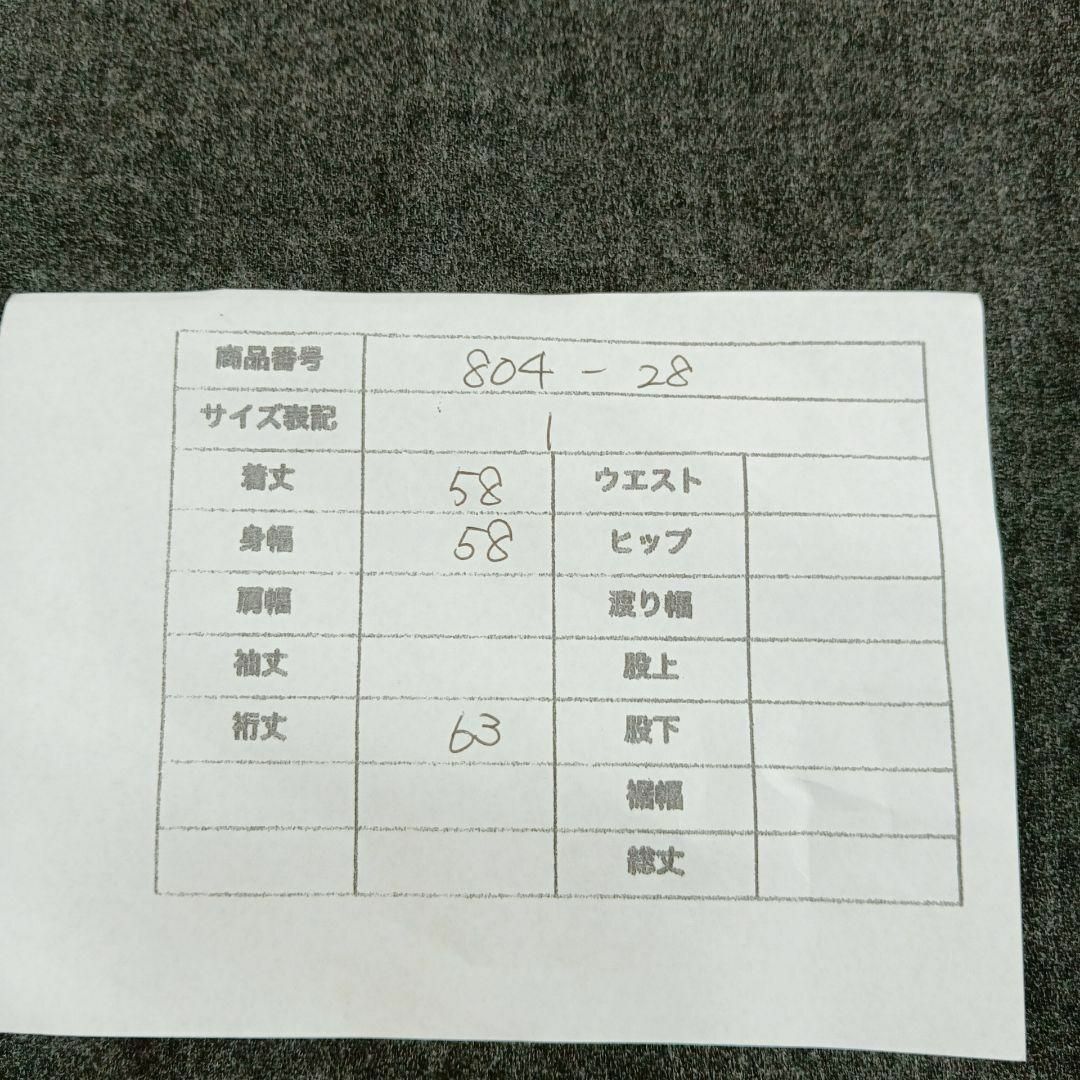 商品番号 804 - 28
サイズ表記 1
着丈 58 ウエスト
身幅 58 ヒップ
肩幅 渡り幅
袖丈 股上
裄丈 63 股下
裾幅
総丈